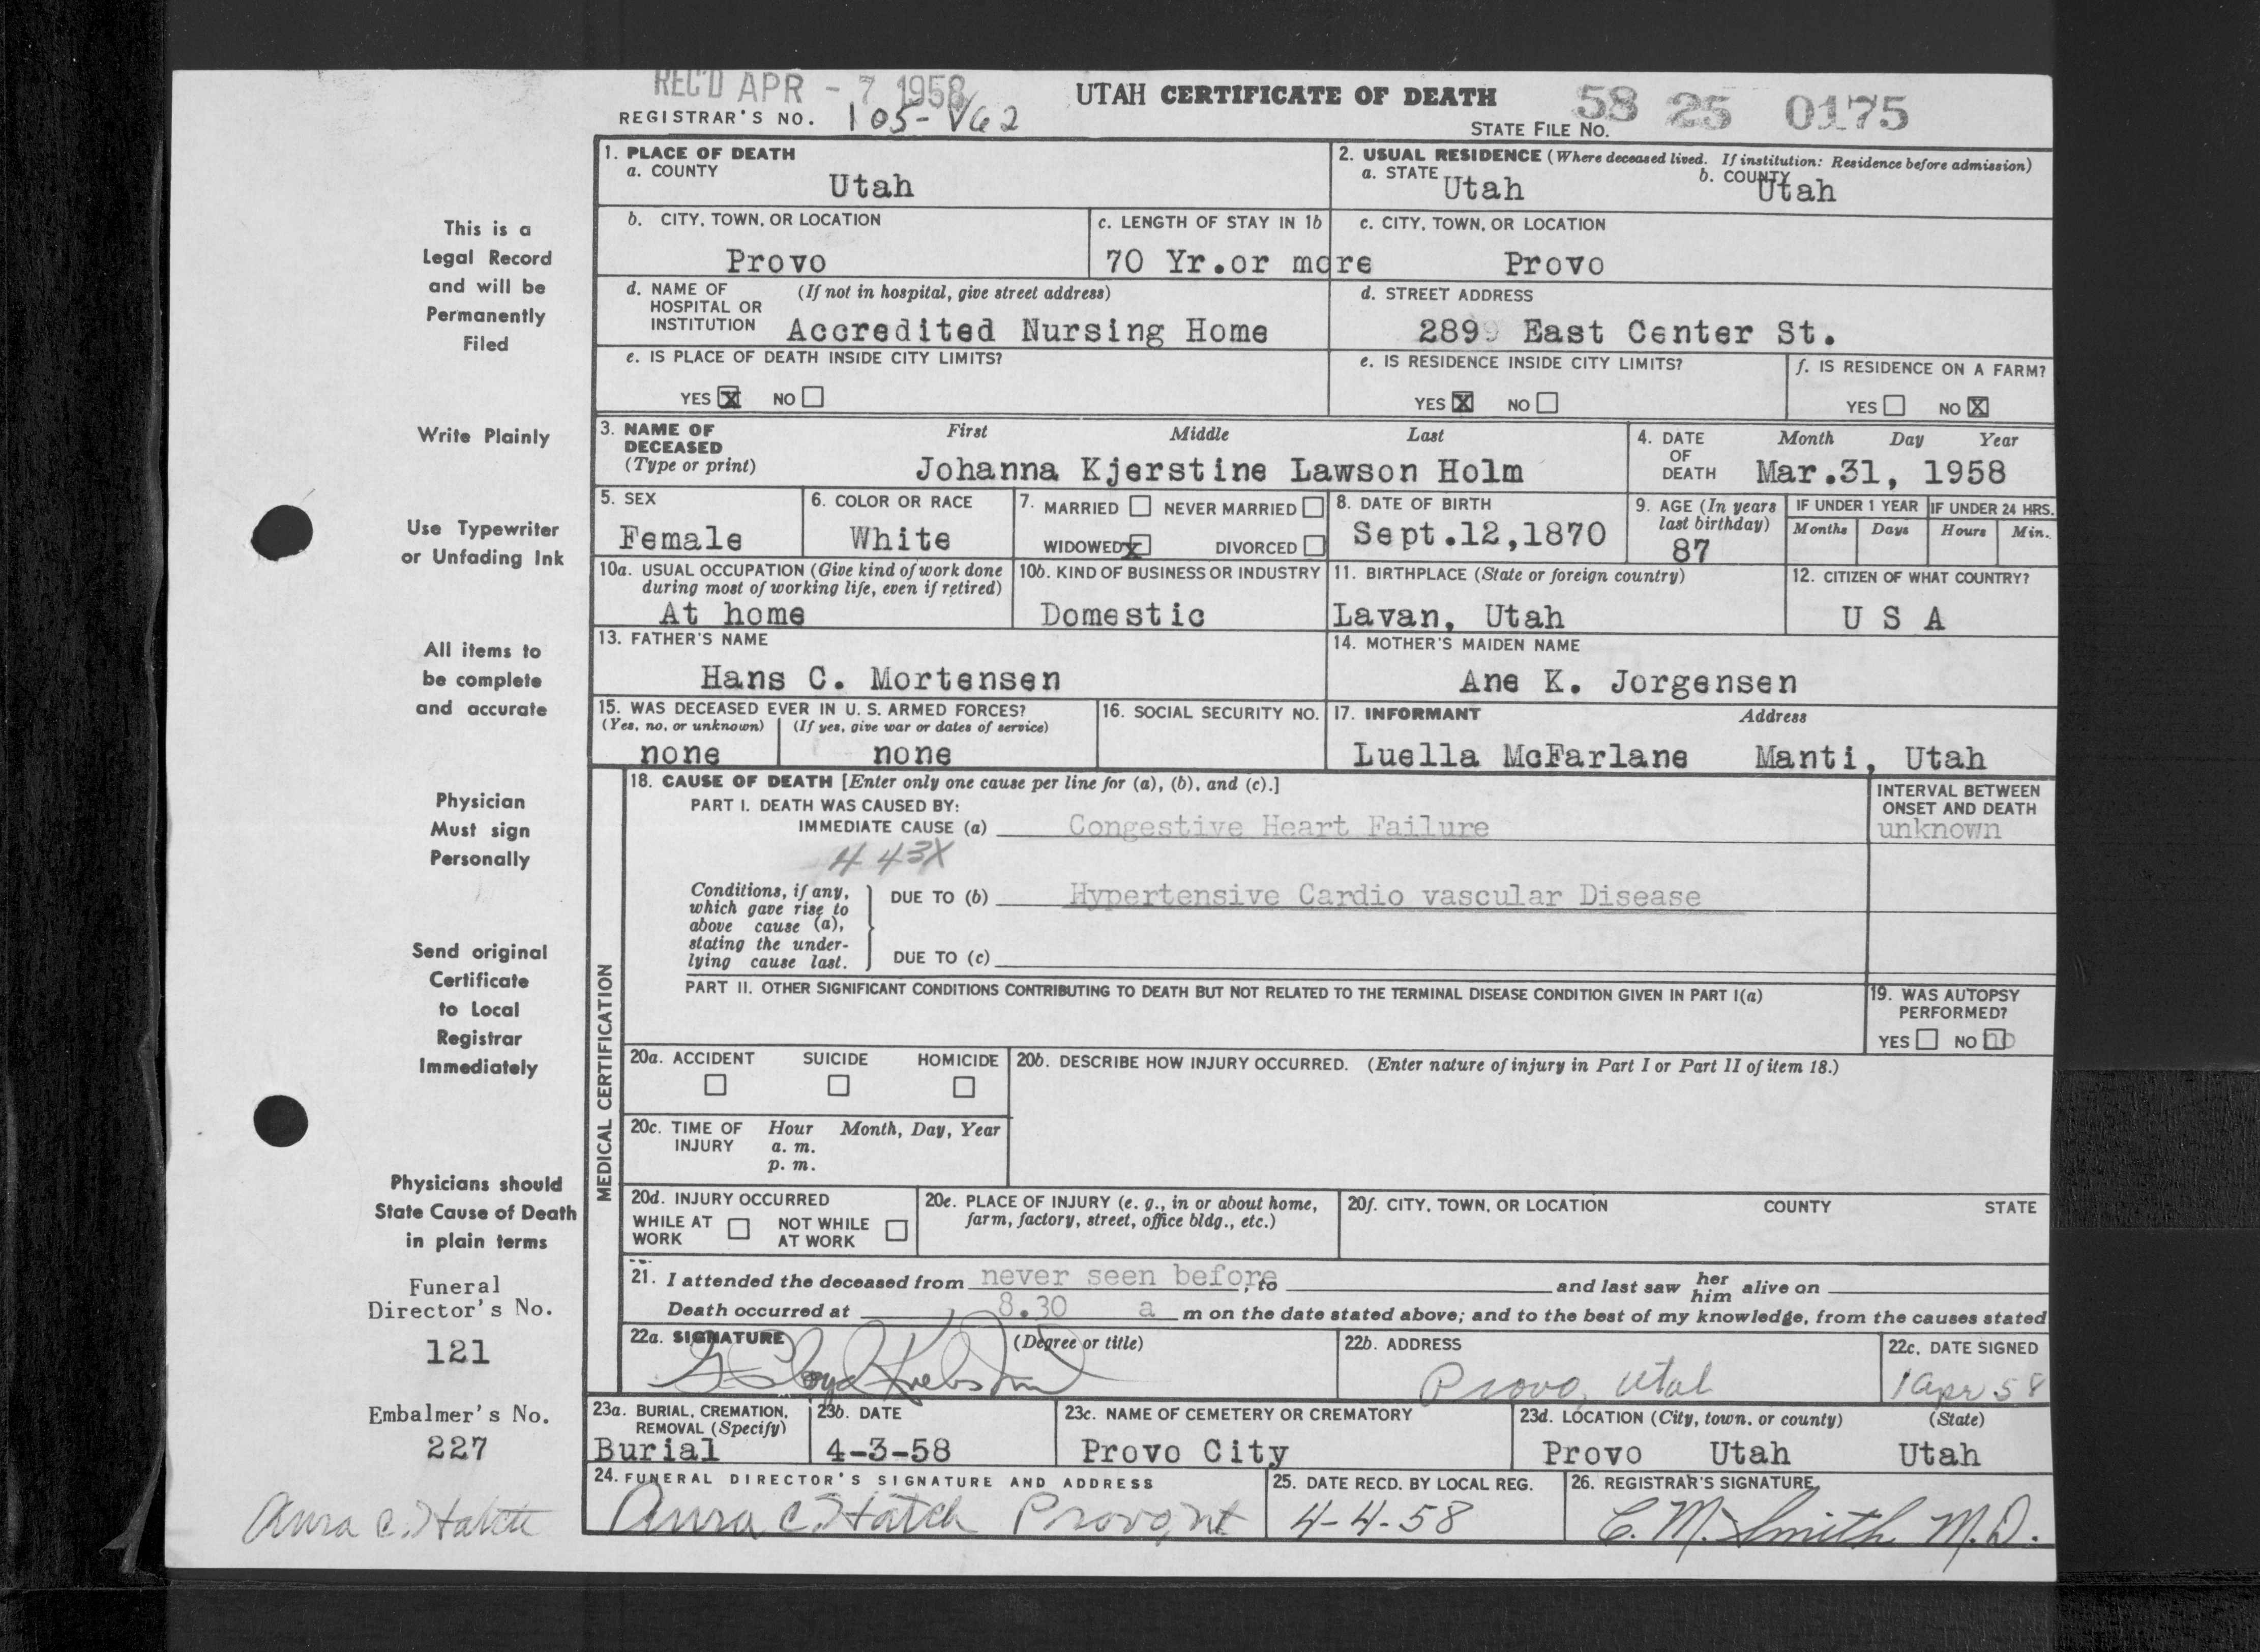 REC'D APR - 7 1958
UTAH CERTIFICATE OF DEATH
58 25 0175
REGISTRAR'S NO. 105-V62
STATE FILE NO.
1. PLACE OF DEATH
a. COUNTY
Utah
2. USUAL RESIDENCE (Where deceased lived. If institution: Residence before admission)
a. STATE Utah b. COUNTY Utah
b. CITY, TOWN, OR LOCATION
Provo
c. LENGTH OF STAY IN 1b
70 Yr.or more
c. CITY, TOWN, OR LOCATION
Provo
d. NAME OF HOSPITAL OR INSTITUTION (If not in hospital, give street address)
Accredited Nursing Home
d. STREET ADDRESS
289 East Center St.
e. IS PLACE OF DEATH INSIDE CITY LIMITS?
YES X NO
e. IS RESIDENCE INSIDE CITY LIMITS?
YES X NO
f. IS RESIDENCE ON A FARM?
YES NO X
3. NAME OF DECEASED (Type or print)
First Middle Last
Johanna Kjerstine Lawson Holm
4. DATE OF DEATH
Month Day Year
Mar.31, 1958
5. SEX
Female
6. COLOR OR RACE
White
7. MARRIED NEVER MARRIED
WIDOWED X DIVORCED
8. DATE OF BIRTH
Sept.12,1870
9. AGE (In years last birthday)
87
IF UNDER 1 YEAR
Months Days
IF UNDER 24 HRS.
Hours Min.
10a. USUAL OCCUPATION (Give kind of work done during most of working life, even if retired)
At home
10b. KIND OF BUSINESS OR INDUSTRY
Domestic
11. BIRTHPLACE (State or foreign country)
Lavan, Utah
12. CITIZEN OF WHAT COUNTRY?
U S A
13. FATHER'S NAME
Hans C. Mortensen
14. MOTHER'S MAIDEN NAME
Ane K. Jorgensen
15. WAS DECEASED EVER IN U. S. ARMED FORCES?
(Yes, no, or unknown) (If yes, give war or dates of service)
none none
16. SOCIAL SECURITY NO.
17. INFORMANT Address
Luella McFarlane Manti, Utah
MEDICAL CERTIFICATION
18. CAUSE OF DEATH [Enter only one cause per line for (a), (b), and (c).]
PART I. DEATH WAS CAUSED BY:
IMMEDIATE CAUSE (a) Congestive Heart Failure
INTERVAL BETWEEN ONSET AND DEATH
unknown
443X
Conditions, if any, which gave rise to above cause (a), stating the underlying cause last.
DUE TO (b) Hypertensive Cardio vascular Disease
DUE TO (c)
PART II. OTHER SIGNIFICANT CONDITIONS CONTRIBUTING TO DEATH BUT NOT RELATED TO THE TERMINAL DISEASE CONDITION GIVEN IN PART I(a)
19. WAS AUTOPSY PERFORMED?
YES NO no
20a. ACCIDENT SUICIDE HOMICIDE
20b. DESCRIBE HOW INJURY OCCURRED. (Enter nature of injury in Part I or Part II of item 18.)
20c. TIME OF INJURY
Hour Month, Day, Year
a. m.
p. m.
20d. INJURY OCCURRED
WHILE AT WORK NOT WHILE AT WORK
20e. PLACE OF INJURY (e. g., in or about home, farm, factory, street, office bldg., etc.)
20f. CITY, TOWN, OR LOCATION COUNTY STATE
21. I attended the deceased from never seen before, to and last saw her him alive on
Death occurred at 8.30 a m on the date stated above; and to the best of my knowledge, from the causes stated
22a. SIGNATURE (Degree or title)
22b. ADDRESS
Provo, Utah
22c. DATE SIGNED
1 Apr 58
23a. BURIAL, CREMATION, REMOVAL (Specify)
Burial
23b. DATE
4-3-58
23c. NAME OF CEMETERY OR CREMATORY
Provo City
23d. LOCATION (City, town, or county) (State)
Provo Utah Utah
24. FUNERAL DIRECTOR'S SIGNATURE AND ADDRESS
Anra C. Hatch Provo, Ut
25. DATE RECD. BY LOCAL REG.
4-4-58
26. REGISTRAR'S SIGNATURE
C. M. Smith M.D.
This is a
Legal Record
and will be
Permanently
Filed
Write Plainly
Use Typewriter
or Unfading Ink
All items to
be complete
and accurate
Physician
Must sign
Personally
Send original
Certificate
to Local
Registrar
Immediately
Physicians should
State Cause of Death
in plain terms
Funeral
Director's No.
121
Embalmer's No.
227
Anra C. Hatch